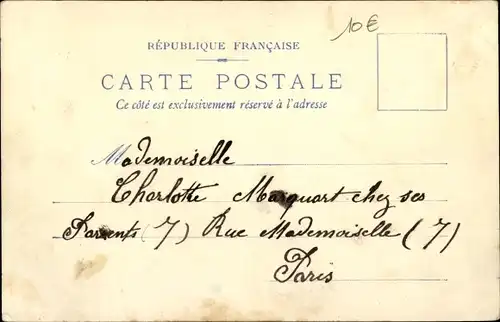 10€
RÉPUBLIQUE FRANÇAISE
CARTE POSTALE
Ce côté est exclusivement réservé à l'adresse
Mademoiselle
Charlotte Marquart chez ses
Parrents (7) Rue Mademoiselle (7)
Paris